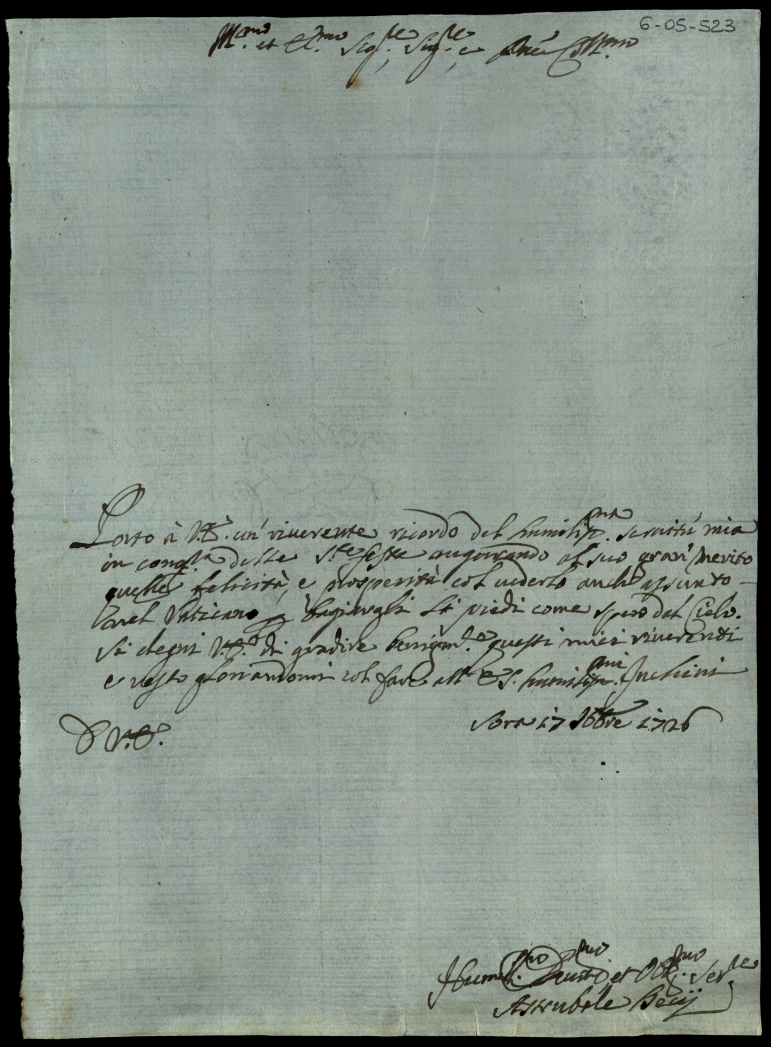 6-05-523
Em.mo et R.mo Sig.re Sig.re e P̃ne Coll.mo
Porto à V.E. un' riverente ricordo del humiliss.ma servitù mia
in cong.ra delle S.te feste augurando al suo gran' merito
quelle felicità, e prosperità col vederlo anche assunto
nel Vaticano bagiargli li piedi come spero dal Cielo.
Si degni V.E. di gradire benignam.te questi miei riverenti
e resto gloriandomi col fare all' E.S. humiliss.mi Inchini
Sora 17 Xbre 1726
D V.E.
Humil.mo Devot.mo et Obl.mo Ser.re
Asdrubale